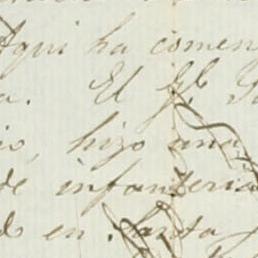 Aqui ha comen
a. El Gl
io, hizo una
de infanteria
do en Santa